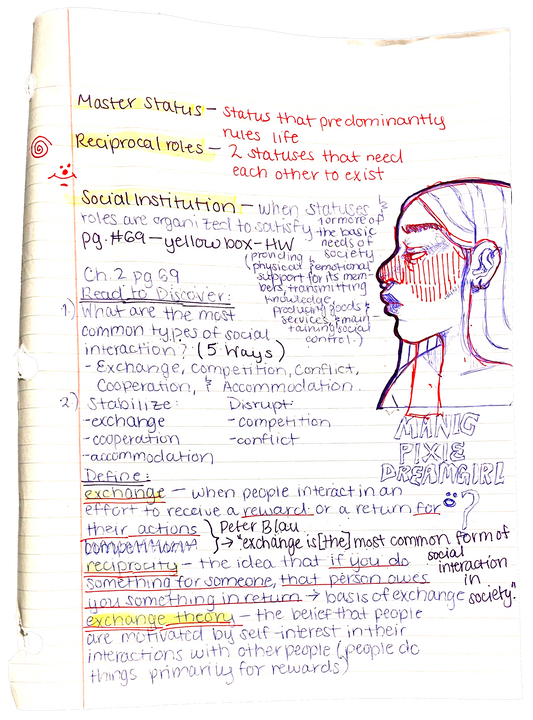 Master Status - status that predominantly
rules life
Reciprocal roles - 2 statuses that need
each other to exist
Social Institution - when statuses &
roles are organized to satisfy 1 or more of
the basic
needs of
society
pg. #69 - yellow box - HW
(providing
physical & emotional
support for its mem-
bers, transmitting
knowledge,
producing goods &
services & main-
taining social
control.)
Ch. 2 pg 69
Read to Discover:
1) What are the most
common types of social
interaction? (5 ways)
- Exchange, competition, Conflict,
Cooperation, & Accommodation.
2) Stabilize: Disrupt:
-exchange -competition
-cooperation -conflict
-accommodation
MANIC
PIXIE
DREAMGIRL
?
Define:
exchange - when people interact in an
effort to receive a reward or a return for
their actions } Peter Blau
competition → "exchange is [the] most common form of
social
interaction
in
society."
reciprocity - the idea that if you do
something for someone, that person owes
you something in return → basis of exchange
exchange theory - the belief that people
are motivated by self-interest in their
interactions with other people (people do
things primarily for rewards)